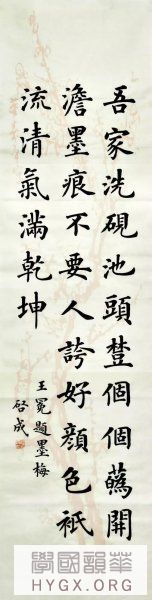 吾家洗硯池頭個個蘤開
澹墨痕不要人誇好顏色衹
流清氣滿乾坤
王冕題墨梅
啓成
華韻國學
HYGX.ORG